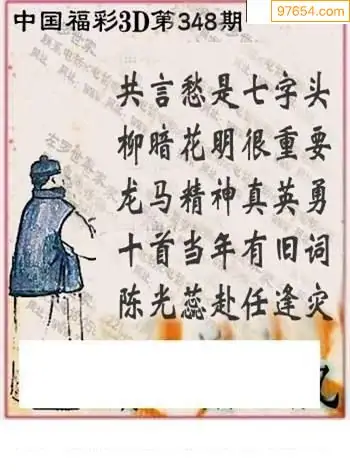 97654.com
中国福彩3D第348期
共言愁是七字头
柳暗花明很重要
龙马精神真英勇
十首当年有旧词
陈光蕊赴任逢灾